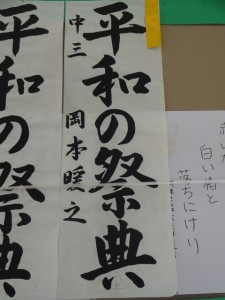 赤い
白い椿と
落ちにけり
平和の祭典
中三 岡本 之
平和の祭典